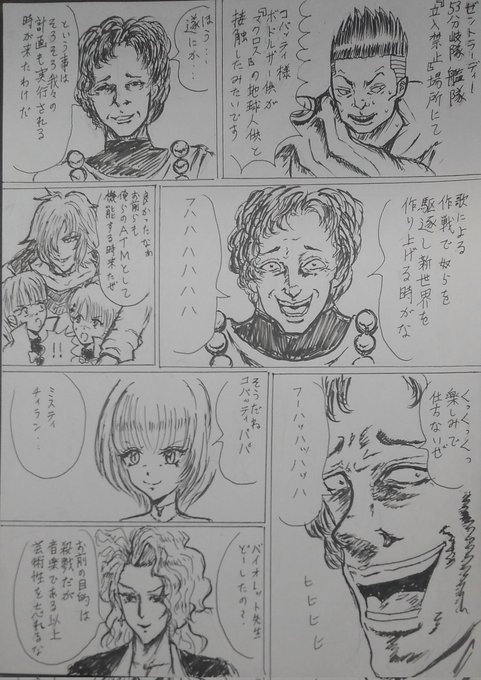 ゼントラーディー
53分岐隊艦隊
『立入禁止』場所にて
コバッティ様
ボドルザー供が
『マクロス』の地球人供と
接触したみたいです
ほう…
遂にか…
という事は
そろそろ我々の
計画も実行される
時が来たわけだ
歌による
作戦で奴らを
駆逐し新世界を
作り上げる時がな
フハハハハハハ
良かったなぁ
お前らも
俺らのATMとして
機能する時来たぜ
!!
くっくっくっくっ
楽しみで
仕方ないぜ
フーハッハッハッハ
ヒヒヒヒ
そうだね
コバッティパパ
ミスティ
チィラン…
バイオレット先生
どーしたの?
お前の目的は
殺戮だが
音楽である以上
芸術性を忘れるな